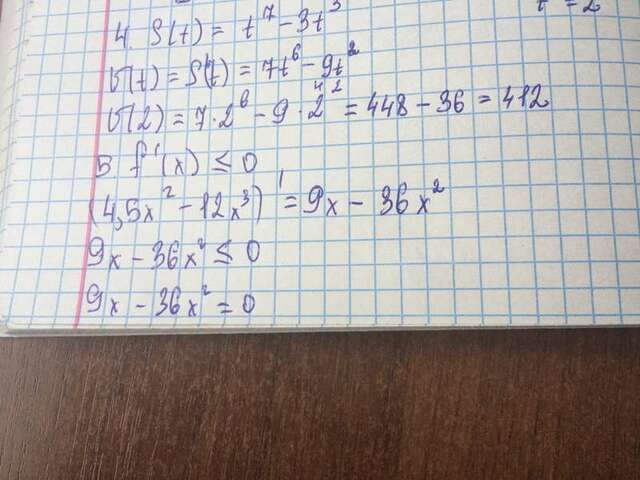 4. S(t) = t⁷ - 3t³ t = 2
V(t) = S'(t) = 7t⁶ - 9t²
V(2) = 7 · 2⁶ - 9 · 2² = 448 - 36 = 412
5. f'(x) ≤ 0
(4,5x² - 12x³)' = 9x - 36x²
9x - 36x² ≤ 0
9x - 36x² = 0